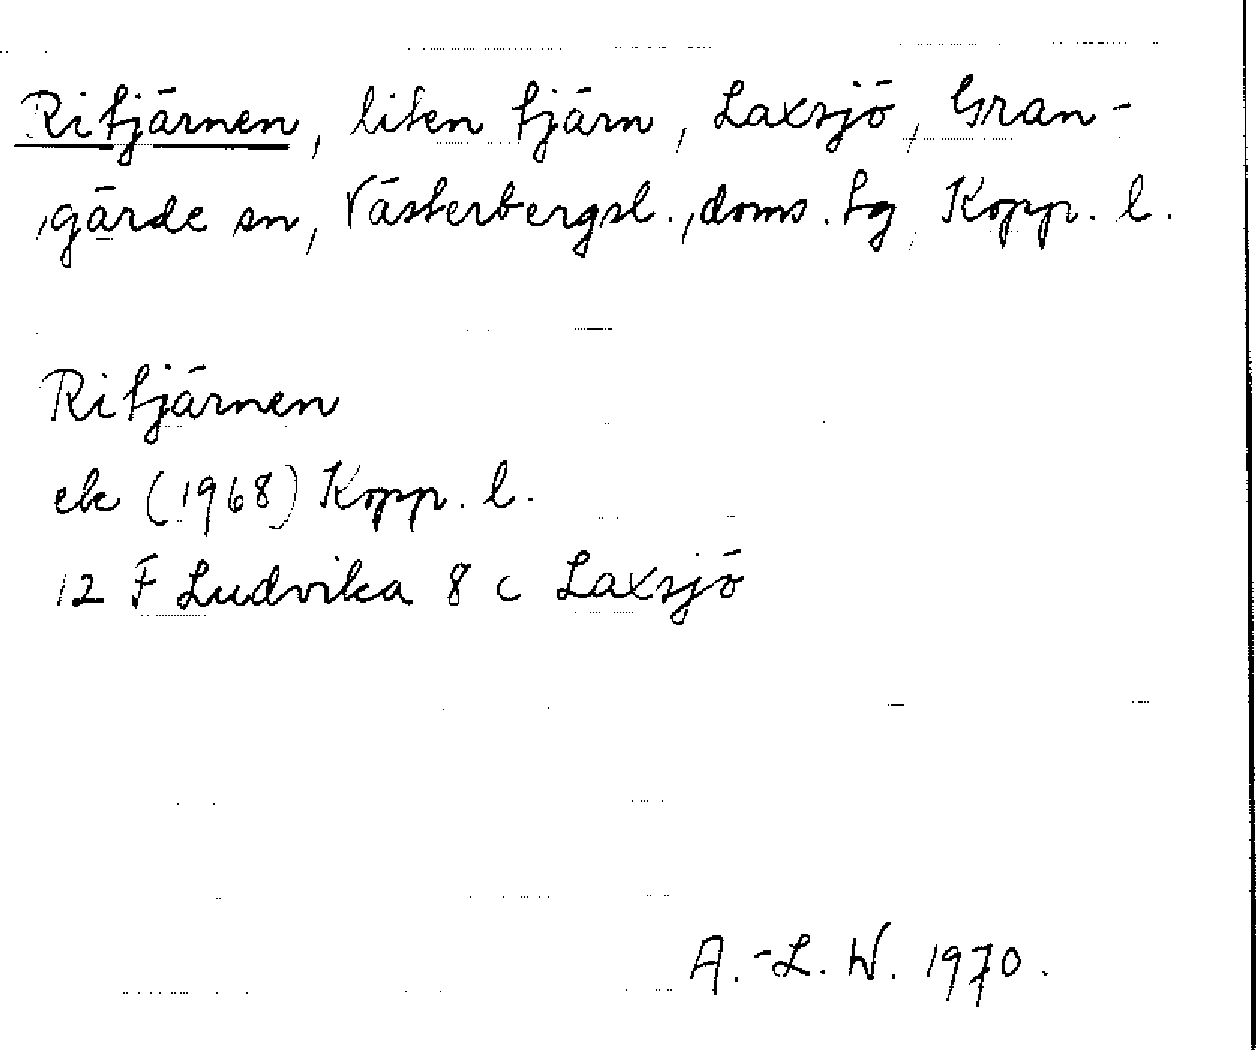 Ritjärnen, liten tjärn, Laxsjö, Gran-
gärde sn, Västerbergsl., doms. tg, Kopp. l.
Ritjärnen
ek (1968) Kopp. l.
12 F Ludvika 8 c Laxsjö
A.-L. W. 1970.